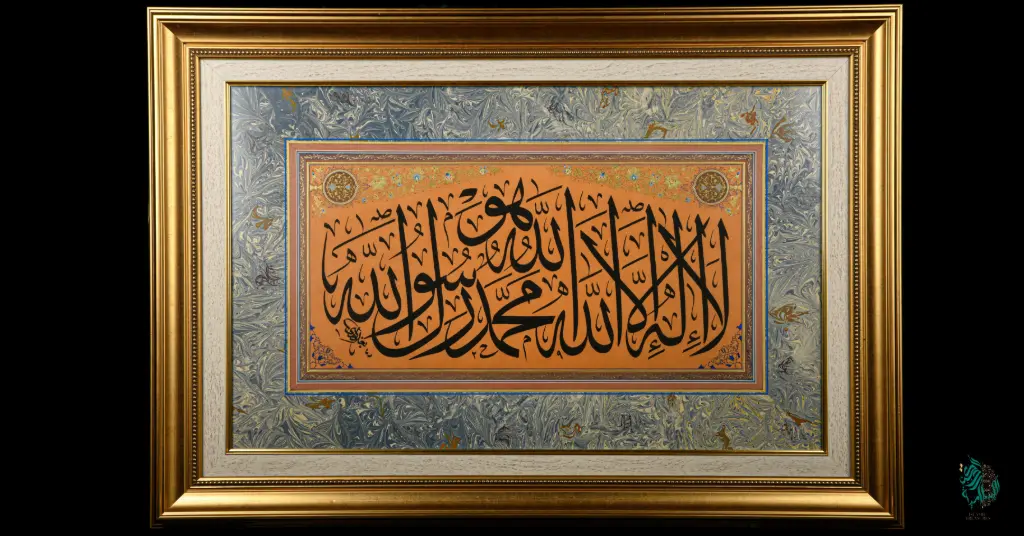 هو الله
لا إله إلا الله محمد رسول الله